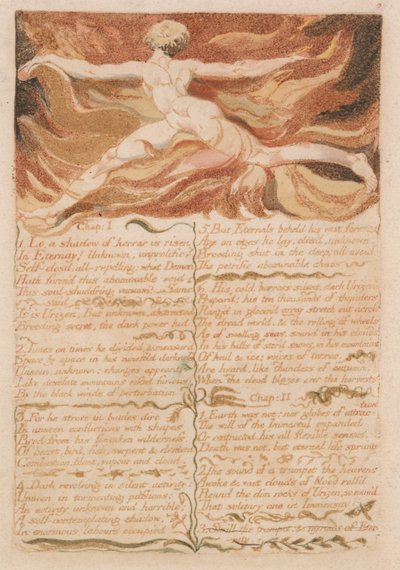 Chap: I
1. Lo, a shadow of horror is risen
In Eternity! Unknown, unprolific!
Self-closd, all-repelling: what Demon
Hath form'd this abominable void
This soul-shudd'ring vacuum? Some
said
It is Urizen, But unknown, abstracted
Brooding secret, the dark power hid.
2. Times on times he divided, & measur'd
Space by space in his ninefold darkness
Unseen, unknown: changes appeard
Like desolate mountains rifted furious
By the black winds of perturbation
3. For he strove in battles dire
In unseen conflictions with shapes
Bred from his forsaken wilderness,
Of beast, bird, fish, serpent & element
Combustion, blast, vapour and cloud.
4. Dark revolving in silent activity:
Unseen in tormenting passions;
An activity unknown and horrible;
A self-contemplating shadow,
In enormous labours occupied
5. But Eternals beheld his vast forests
Age on ages he lay, clos'd, unknown,
Brooding shut in the deep; all avoid
The petrific abominable chaos
6. His cold horrors silent, dark Urizen
Prepar'd: his ten thousands of thunders
Rang'd in array stretch out across
The dread world, & the rolling of wheels
As of swelling seas, sound in his clouds
In his hills of stor'd snows, in his mountains
Of hail & ice; voices of terror,
Are heard, like thunders of autumn,
When the cloud blazes over the harvests
Chap: II
1. Earth was not: nor globes of attraction
The will of the Immortal expanded
Or contracted his all flexible senses.
Death was not, but eternal life sprung
2. The sound of a trumpet the heavens
Awoke & vast clouds of blood roll'd
Round the dim rocks of Urizen, so nam'd
That solitary one in Immensity
3. Shrill the trumpet: & myriads of Eter-
nity